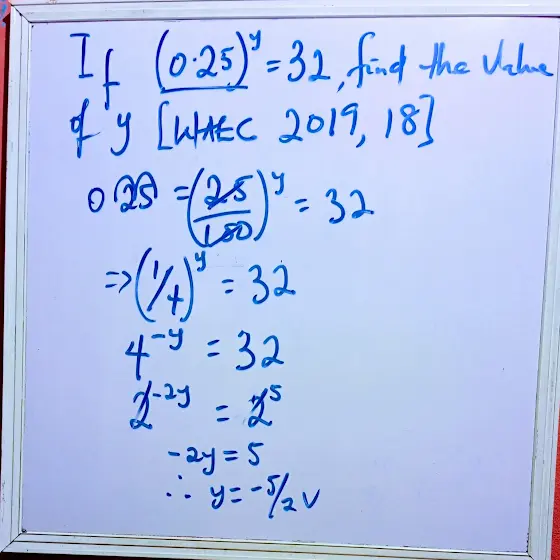 If (0.25)^y = 32, find the value
of y [WAEC 2019, 18]
0.25 = (25/100)^y = 32
=> (1/4)^y = 32
4^-y = 32
2^-2y = 2^5
-2y = 5
∴ y = -5/2 ✓